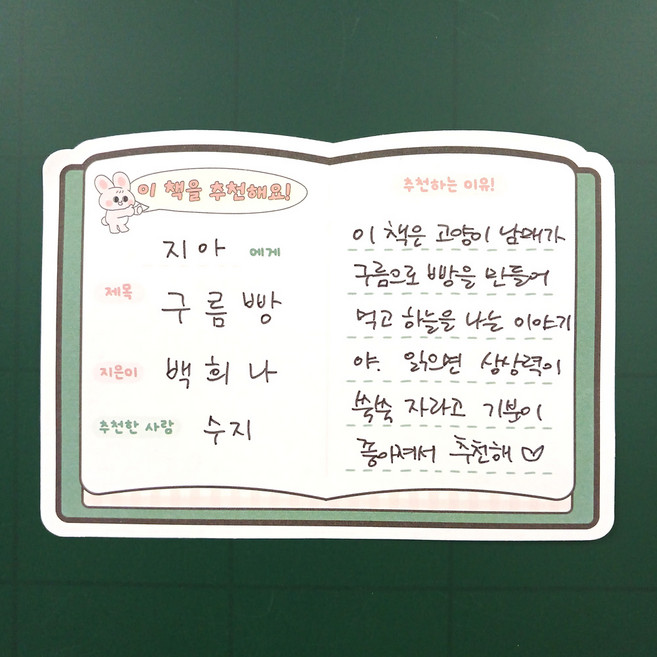 이 책을 추천해요!
지아 에게
제목 구름빵
지은이 백희나
추천한 사람 수지
추천하는 이유!
이 책은 고양이 남매가
구름으로 빵을 만들어
먹고 하늘을 나는 이야기
야. 읽으면 상상력이
쑥쑥 자라고 기분이
좋아져서 추천해 ♡